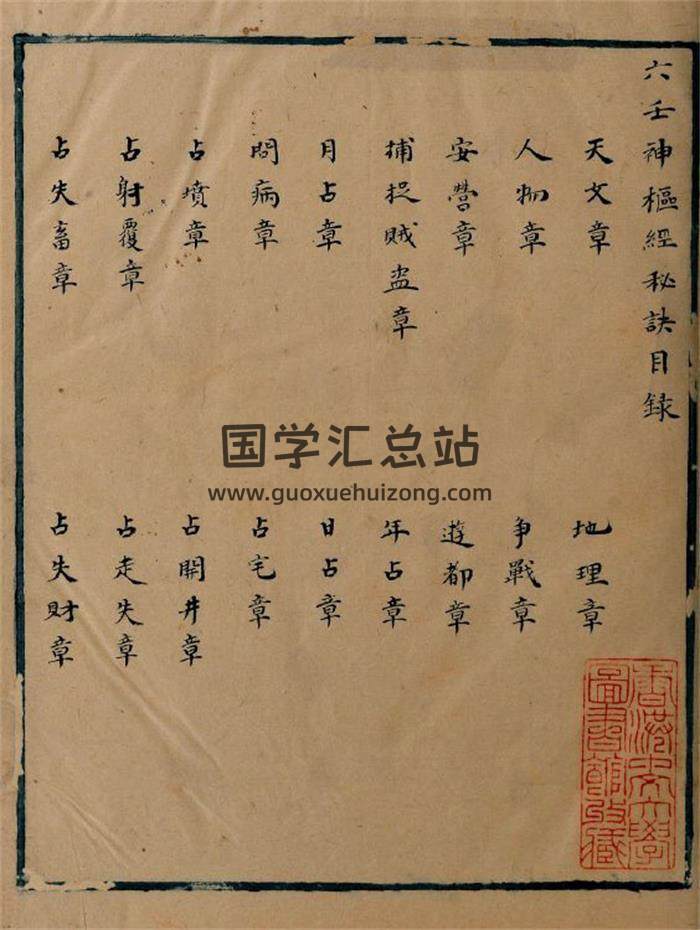 六壬神樞經秘訣目錄
天文章
地理章
人物章
争戰章
安營章
遊都章
捕捉賊盗章
年占章
月占章
日占章
問病章
占宅章
占墳章
占開井章
占射覆章
占走失章
占失畜章
占失财章
国学汇总站
www.guoxuehuizong.com
香港中文大學
圖書館攷藏